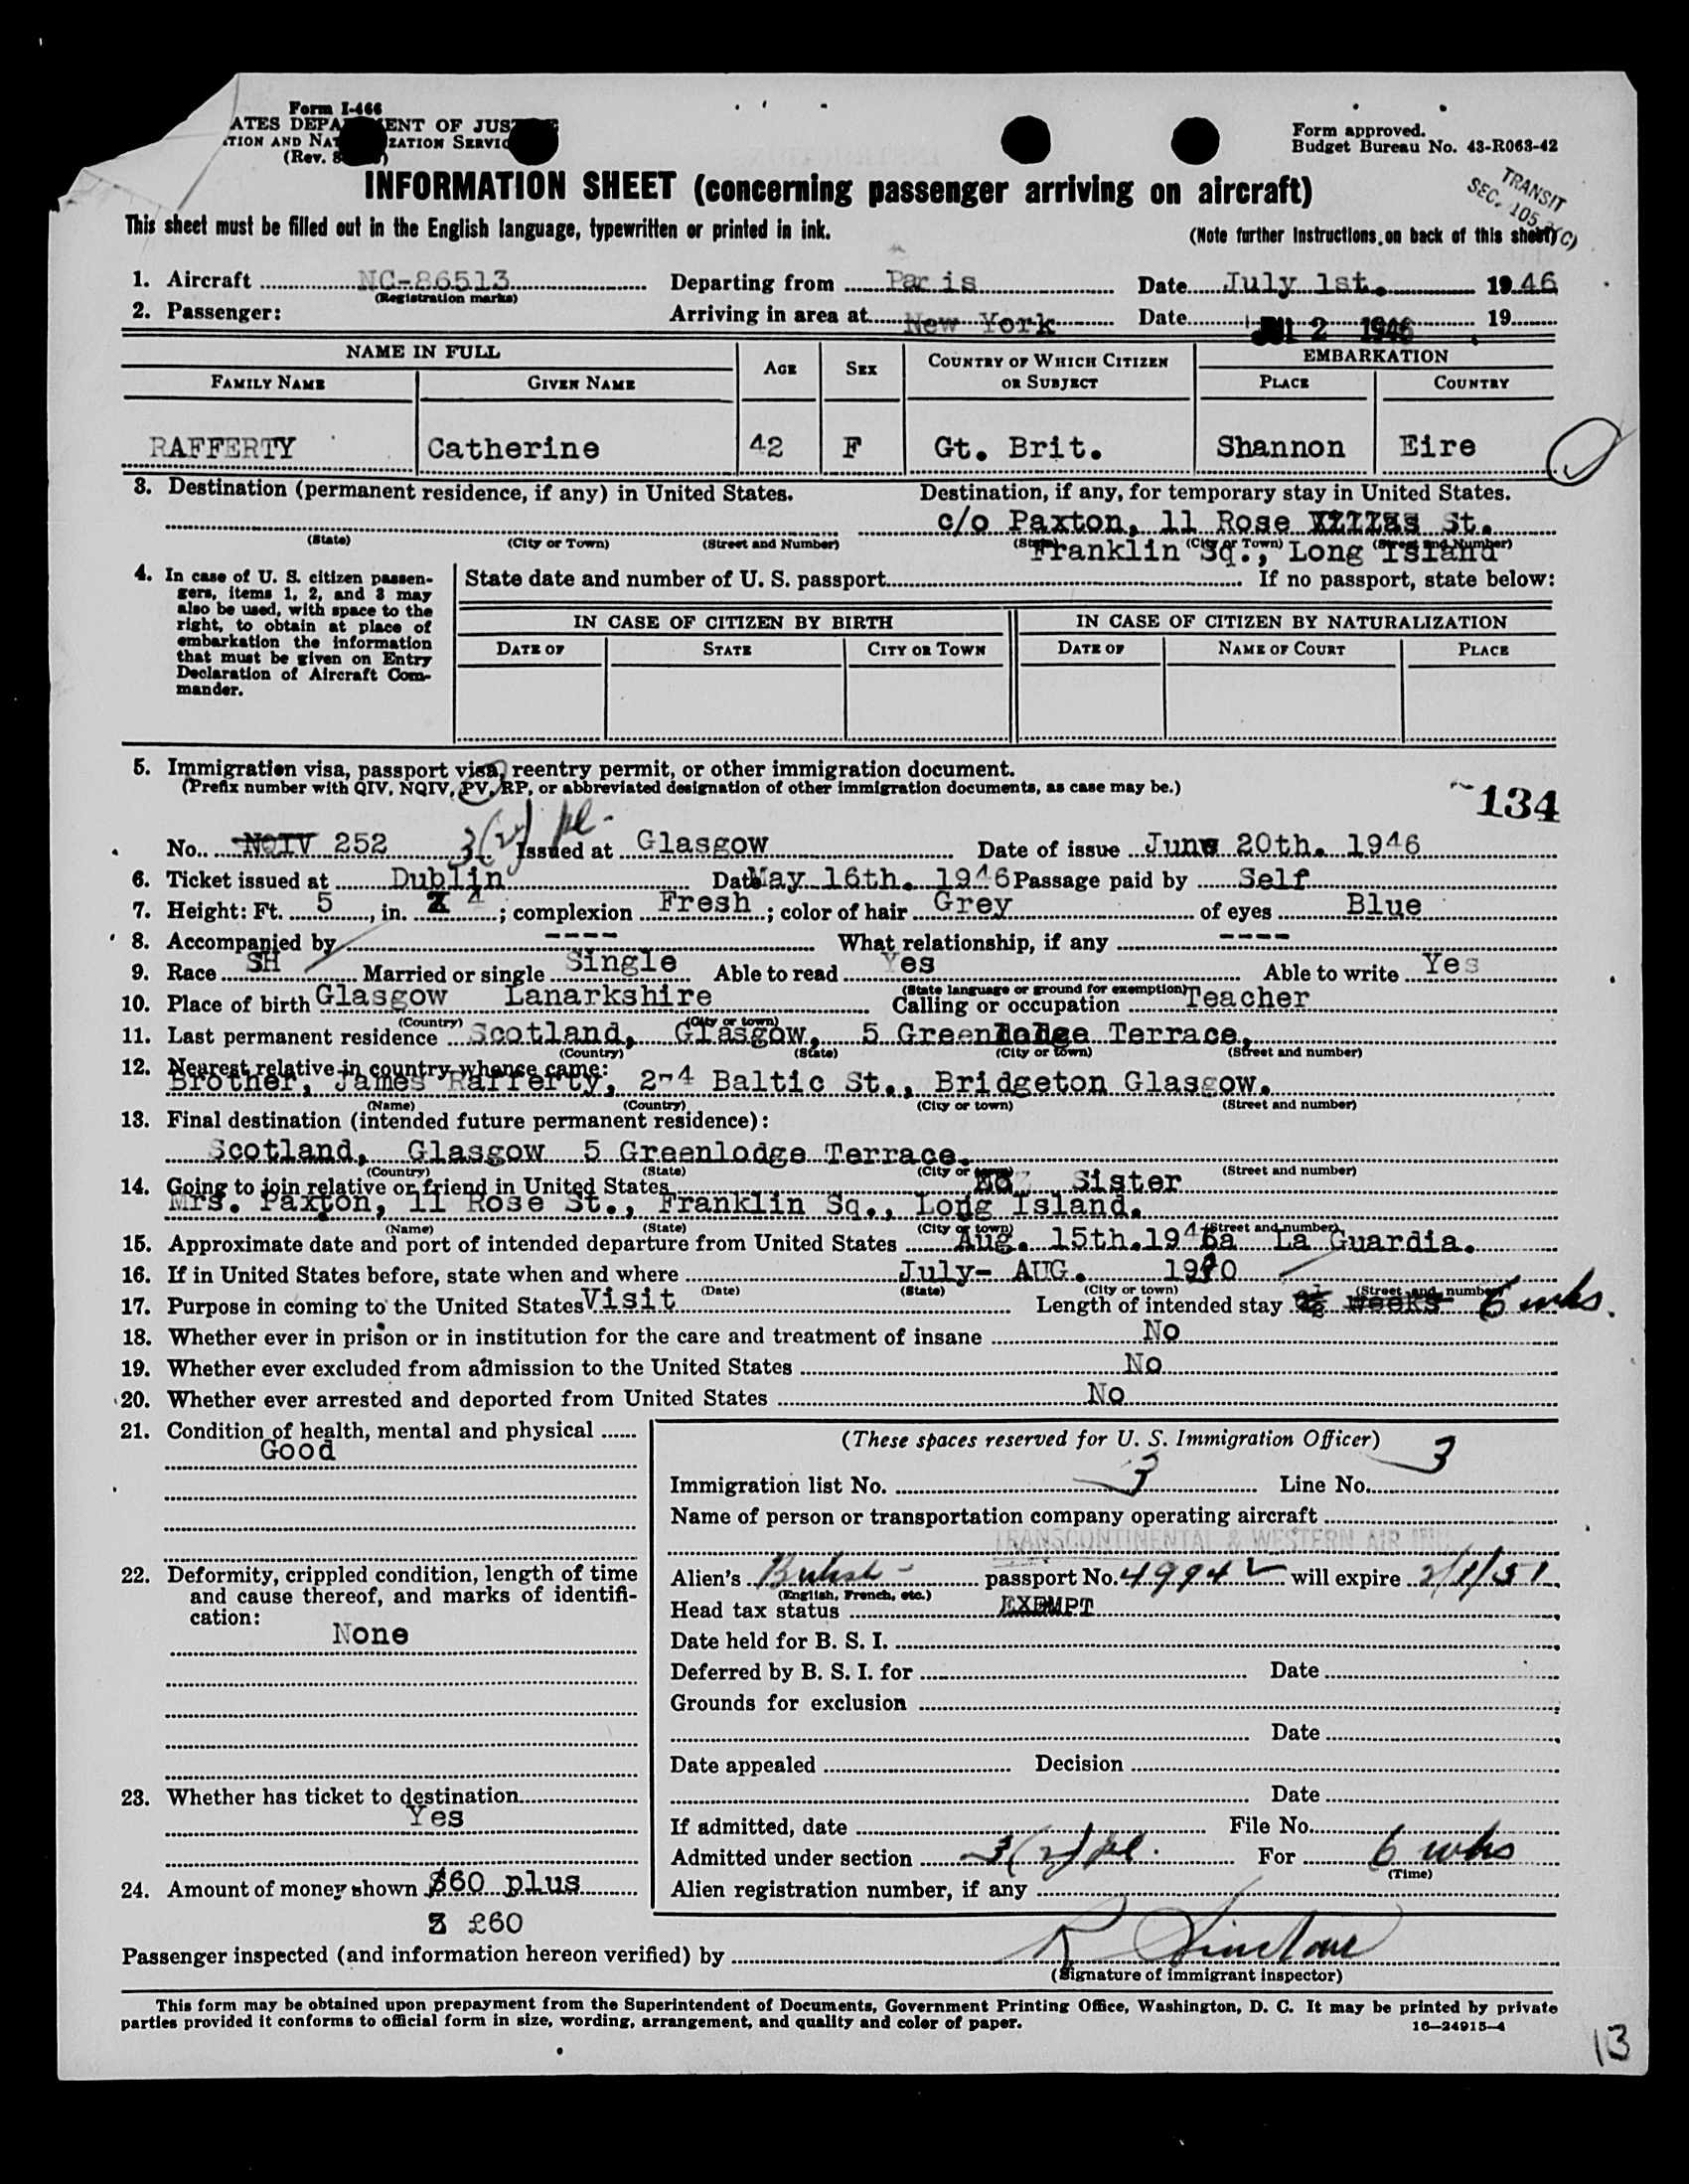 Form I-466
ATES DEPA ENT OF JUS
TION AND NAT ZATION SERVIC
(Rev. 8 )
Form approved.
Budget Bureau No. 43-R063-42
INFORMATION SHEET (concerning passenger arriving on aircraft)
TRANSIT
SEC. 105
This sheet must be filled out in the English language, typewritten or printed in ink.
(Note further instructions on back of this sheet)
1. Aircraft NC-86513 Departing from Paris Date July 1st. 1946
(Registration marks)
2. Passenger: Arriving in area at New York Date JUL 2 1946 19
NAME IN FULL AGE SEX COUNTRY OF WHICH CITIZEN OR SUBJECT EMBARKATION
FAMILY NAME GIVEN NAME PLACE COUNTRY
RAFFERTY Catherine 42 F Gt. Brit. Shannon Eire
3. Destination (permanent residence, if any) in United States. Destination, if any, for temporary stay in United States.
c/o Paxton, 11 Rose St.
(State) (City or Town) (Street and Number) (State) (City or Town) (Street and Number)
Franklin Sq., Long Island
4. In case of U. S. citizen passengers, items 1, 2, and 3 may also be used, with space to the right, to obtain at place of embarkation the information that must be given on Entry Declaration of Aircraft Commander.
State date and number of U. S. passport If no passport, state below:
IN CASE OF CITIZEN BY BIRTH IN CASE OF CITIZEN BY NATURALIZATION
DATE OF STATE CITY OR TOWN DATE OF NAME OF COURT PLACE
5. Immigration visa, passport visa, reentry permit, or other immigration document.
(Prefix number with QIV, NQIV, PV, RP, or abbreviated designation of other immigration documents, as case may be.)
134
No. NQIV 252 3(2) Issued at Glasgow Date of issue June 20th. 1946
6. Ticket issued at Dublin Date May 16th. 1946 Passage paid by Self
7. Height: Ft. 5, in. 4; complexion Fresh; color of hair Grey of eyes Blue
8. Accompanied by ---- What relationship, if any ----
9. Race SH Married or single Single Able to read Yes Able to write Yes
(State language or ground for exemption)
10. Place of birth Glasgow Lanarkshire Calling or occupation Teacher
(Country) (City or town)
11. Last permanent residence Scotland, Glasgow, 5 Greenlodge Terrace,
(Country) (State) (City or town) (Street and number)
12. Nearest relative in country whence came:
Brother, James Rafferty, 2-4 Baltic St., Bridgeton Glasgow.
(Name) (Country) (City or town) (Street and number)
13. Final destination (intended future permanent residence):
Scotland, Glasgow 5 Greenlodge Terrace.
(Country) (State) (City or town) (Street and number)
14. Going to join relative or friend in United States Sister
Mrs. Paxton, 11 Rose St., Franklin Sq., Long Island.
(Name) (State) (City or town) (Street and number)
15. Approximate date and port of intended departure from United States Aug. 15th.1946 La Guardia.
16. If in United States before, state when and where July- AUG.
(Date) (State) (City or town) (Street and number)
17. Purpose in coming to the United States Visit Length of intended stay weeks 6 wks.
18. Whether ever in prison or in institution for the care and treatment of insane No
19. Whether ever excluded from admission to the United States No
20. Whether ever arrested and deported from United States No
21. Condition of health, mental and physical
Good
(These spaces reserved for U. S. Immigration Officer)
Immigration list No. 3 Line No. 3
Name of person or transportation company operating aircraft
TRANSCONTINENTAL & WESTERN AIR INC
22. Deformity, crippled condition, length of time and cause thereof, and marks of identification:
None
Alien's British passport No. 4994 will expire 2/1/51
(English, French, etc.)
Head tax status EXEMPT
Date held for B. S. I.
Deferred by B. S. I. for Date
Grounds for exclusion
Date
Date appealed Decision
Date
23. Whether has ticket to destination
Yes
If admitted, date File No.
Admitted under section 3(2) For 6 wks
(Time)
24. Amount of money shown $60 plus
£60
Alien registration number, if any
Passenger inspected (and information hereon verified) by
(Signature of immigrant inspector)
This form may be obtained upon prepayment from the Superintendent of Documents, Government Printing Office, Washington, D. C. It may be printed by private
parties provided it conforms to official form in size, wording, arrangement, and quality and color of paper.
16—24915-4
13